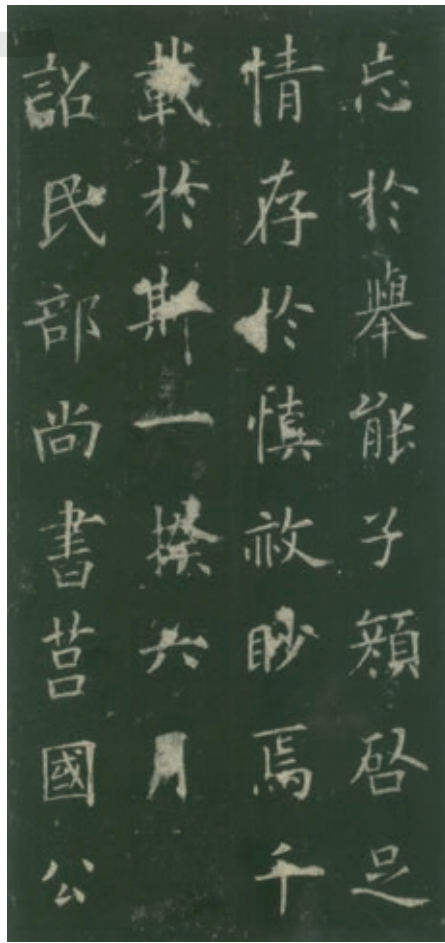 忘於舉能子顔啓足
情存於慎赦眇焉千
載於斯一揆六月
詔民部尚書莒國公